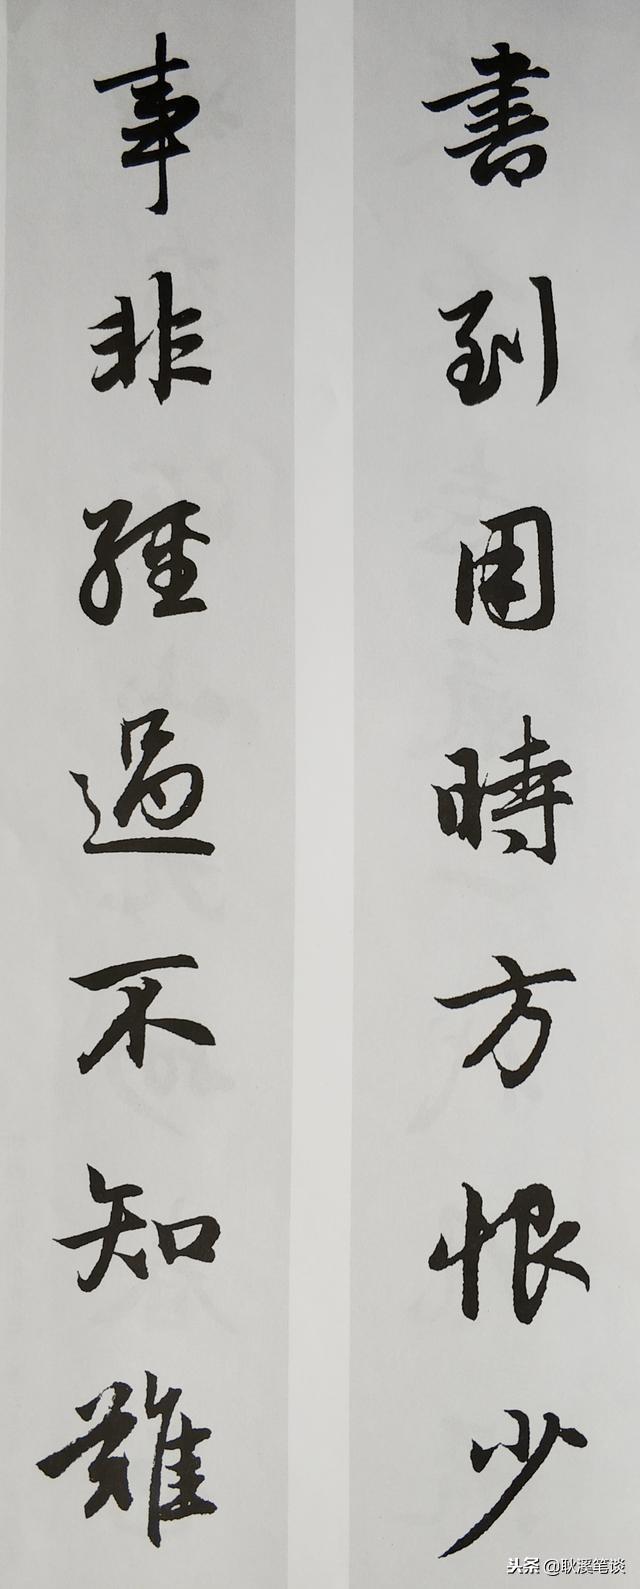 書到用時方恨少
事非經過不知難
头条 @耿溪笔谈